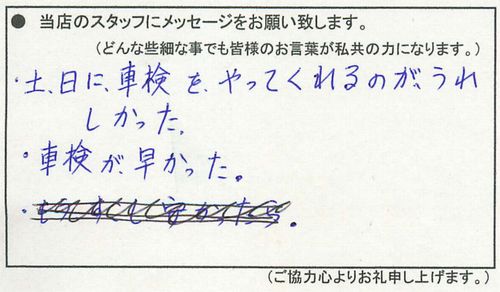 ● 当店のスタッフにメッセージをお願い致します。
（どんな些細な事でも皆様のお言葉が私共の力になります。）
・土、日に、車検を、やってくれるのが、うれ
しかった。
・車検が、早かった。
（ご協力心よりお礼申し上げます。）